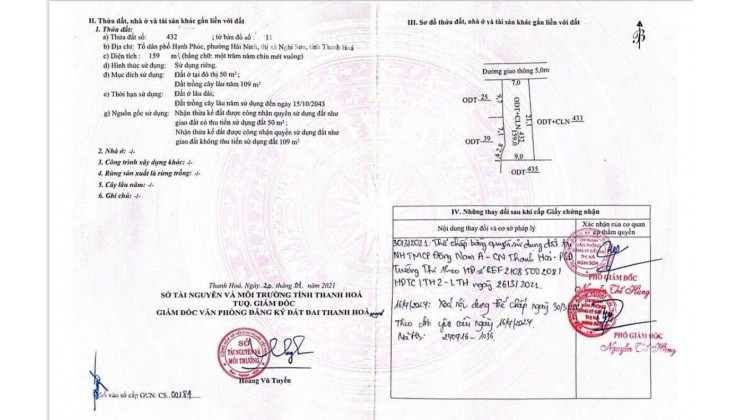 II. Thửa đất, nhà ở và tài sản khác gắn liền với đất
1. Thửa đất:
a) Thửa đất số: 432 ; tờ bản đồ số : 11
b) Địa chỉ: Tổ dân phố Hạnh Phúc, phường Hải Ninh, thị xã Nghi Sơn, tỉnh Thanh Hoá
c) Diện tích : 159 m², (bằng chữ: một trăm năm chín mét vuông)
d) Hình thức sử dụng: Sử dụng riêng.
đ) Mục đích sử dụng: Đất ở tại đô thị 50 m²;
Đất trồng cây lâu năm 109 m²
e) Thời hạn sử dụng: Đất ở lâu dài;
Đất trồng cây lâu năm sử dụng đến ngày 15/10/2043
g) Nguồn gốc sử dụng: Nhận thừa kế đất được công nhận quyền sử dụng đất như
giao đất có thu tiền sử dụng đất 50 m²;
Nhận thừa kế đất được công nhận quyền sử dụng đất như
giao đất không thu tiền sử dụng đất 109 m²
2. Nhà ở: -/-
3. Công trình xây dựng khác: -/-
4. Rừng sản xuất là rừng trồng: -/-
5. Cây lâu năm: -/-
6. Ghi chú: -/-
Thanh Hoá, ngày 20 tháng 01 năm 2021
SỞ TÀI NGUYÊN VÀ MÔI TRƯỜNG TỈNH THANH HOÁ
TUQ. GIÁM ĐỐC
GIÁM ĐỐC VĂN PHÒNG ĐĂNG KÝ ĐẤT ĐAI THANH HOÁ
SỞ
TÀI NGUYÊN VÀ
MÔI TRƯỜNG
Hoàng Vũ Tuyển
Số vào sổ cấp GCN: CS 00184
III. Sơ đồ thửa đất, nhà ở và tài sản khác gắn liền với đất
B
Đường giao thông 5,0m
7,0
ODT 25
ODT+CLN 432
159,0
21,1
ODT+CLN 433
ODT 39
9,0
ODT 435
IV. Những thay đổi sau khi cấp Giấy chứng nhận
Nội dung thay đổi và cơ sở pháp lý
Xác nhận của cơ quan
có thẩm quyền
30/3/2021: Thế chấp bằng quyền sử dụng đất tại
NH TMCP Đông Nam Á - CN Thanh Hoá - PGD
Trường Thi theo HĐ số REF 2108500208/
HĐTC/TH2-LTH ngày 26/3/21.
PHÓ GIÁM ĐỐC
Nguyễn Thế Hùng
16/7/2024: Xoá nội dung thế chấp ngày 30/3/
Theo yêu cầu ngày 16/7/2024.
240716-1036
PHÓ GIÁM ĐỐC
Nguyễn Thế Hùng